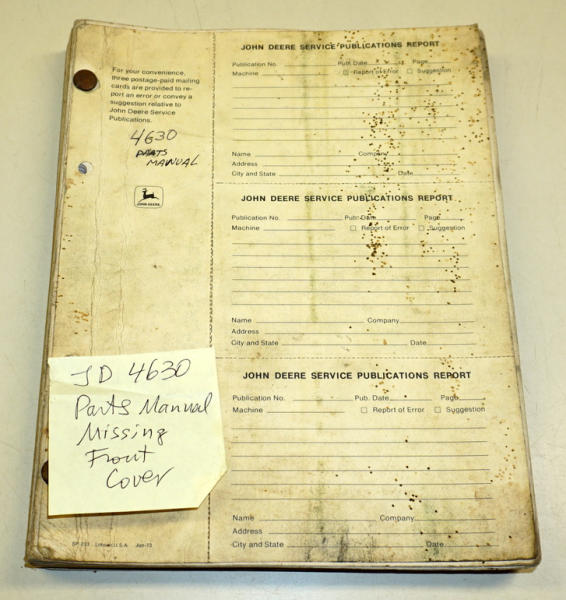 For your convenience,
three postage-paid mailing
cards are provided to re-
port an error or convey a
suggestion relative to
John Deere Service
Publications.
4630
PARTS
MANUAL
JOHN DEERE
JD 4630
Parts Manual
Missing
Front
Cover
Litho in U.S.A.
JOHN DEERE SERVICE PUBLICATIONS REPORT
Publication No. Pub. Date Page
Machine Report of Error Suggestion
Name Company
Address
City and State Date
JOHN DEERE SERVICE PUBLICATIONS REPORT
Publication No. Pub. Date Page
Machine Report of Error Suggestion
Name Company
Address
City and State Date
JOHN DEERE SERVICE PUBLICATIONS REPORT
Publication No. Pub. Date Page
Machine Report of Error Suggestion
Name Company
Address
City and State Date